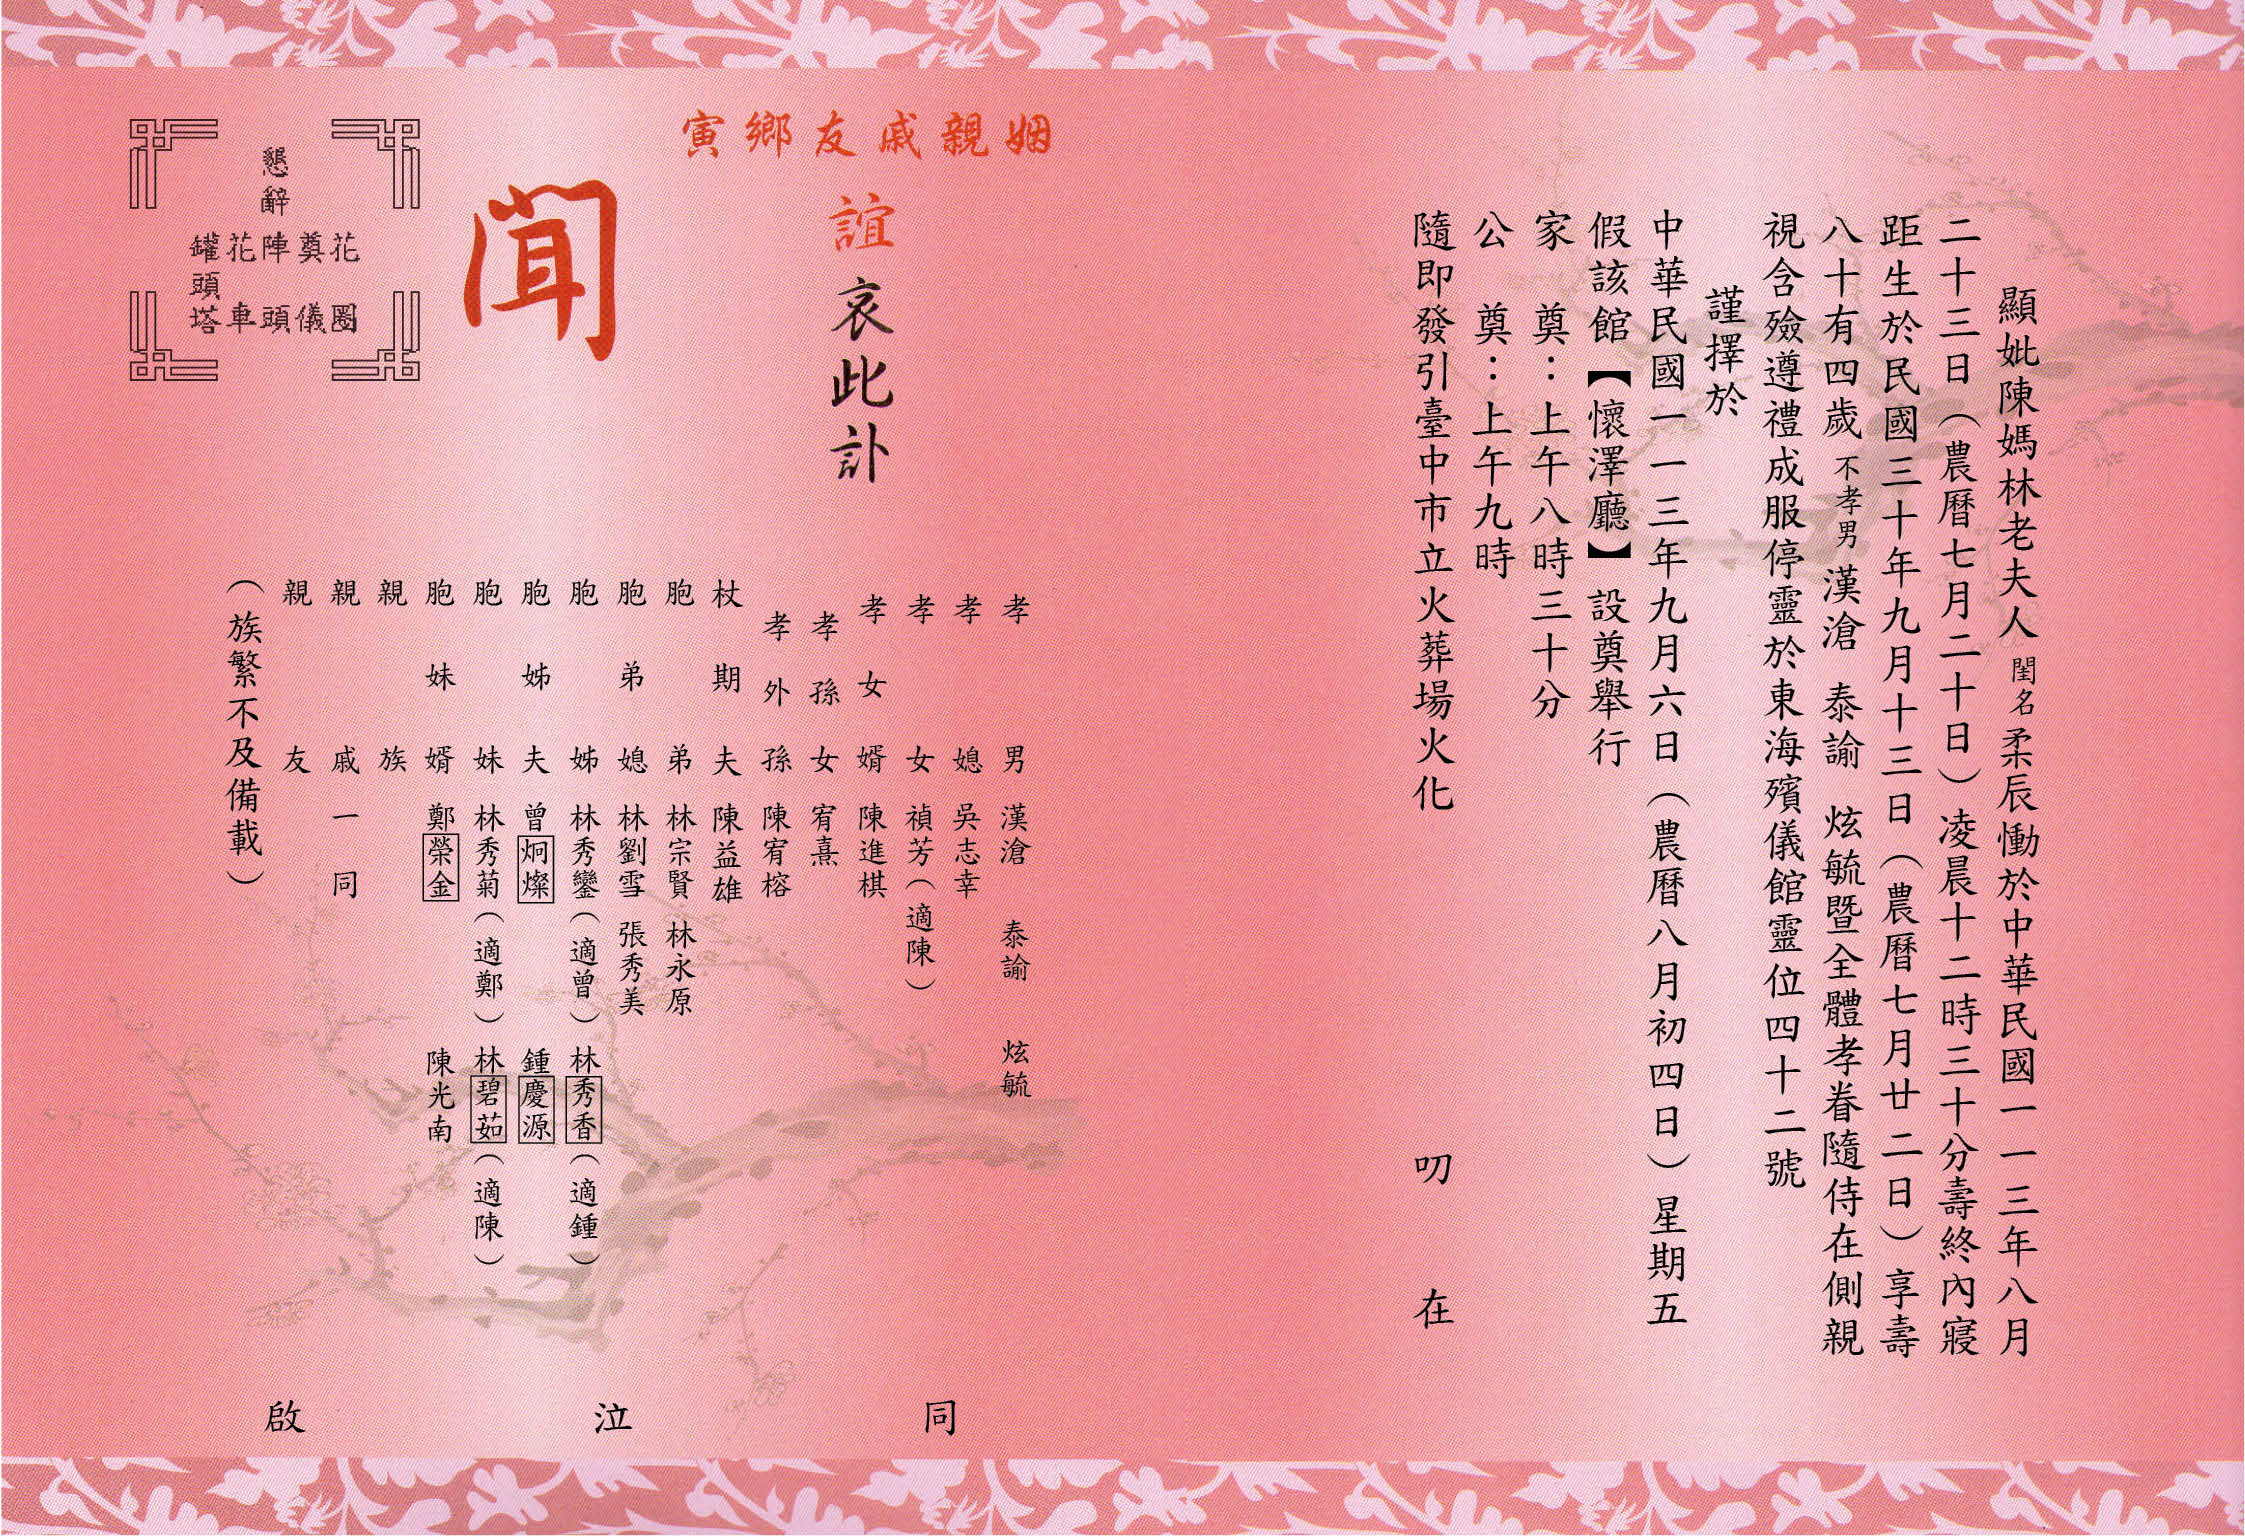 顯妣陳媽林老夫人 閨名 柔辰慟於中華民國一一三年八月
二十三日（農曆七月二十日）凌晨十二時三十分壽終內寢
距生於民國三十年九月十三日（農曆七月廿二日）享壽
八十有四歲 不孝男 漢滄 泰諭 炫毓暨全體孝眷隨侍在側親
視含殮遵禮成服停靈於東海殯儀館靈位四十二號
謹擇於
中華民國一一三年九月六日（農曆八月初四日）星期五
假該館【懷澤廳】設奠舉行
家 奠：上午八時三十分
公 奠：上午九時
隨即發引臺中市立火葬場火化
叨 在
姻親戚友鄉寅
誼 哀此訃
聞
孝男 漢滄 泰諭 炫毓
孝媳 吳志幸
孝女 禎芳（適陳）
孝女婿 陳進棋
孝孫女 宥熹
孝外孫 陳宥榕
杖期夫 陳益雄
胞弟 林宗賢 林永原
胞弟媳 林劉雪 張秀美
胞姊 林秀鑾（適曾） 林秀香（適鍾）
胞姊夫 曾炯燦 鍾慶源
胞妹 林秀菊（適鄭） 林碧茹（適陳）
胞妹婿 鄭榮金 陳光南
親族
親戚一同
親友
（族繁不及備載）
同泣啟
懇辭
花圈
奠儀
陣頭
花車
罐頭塔